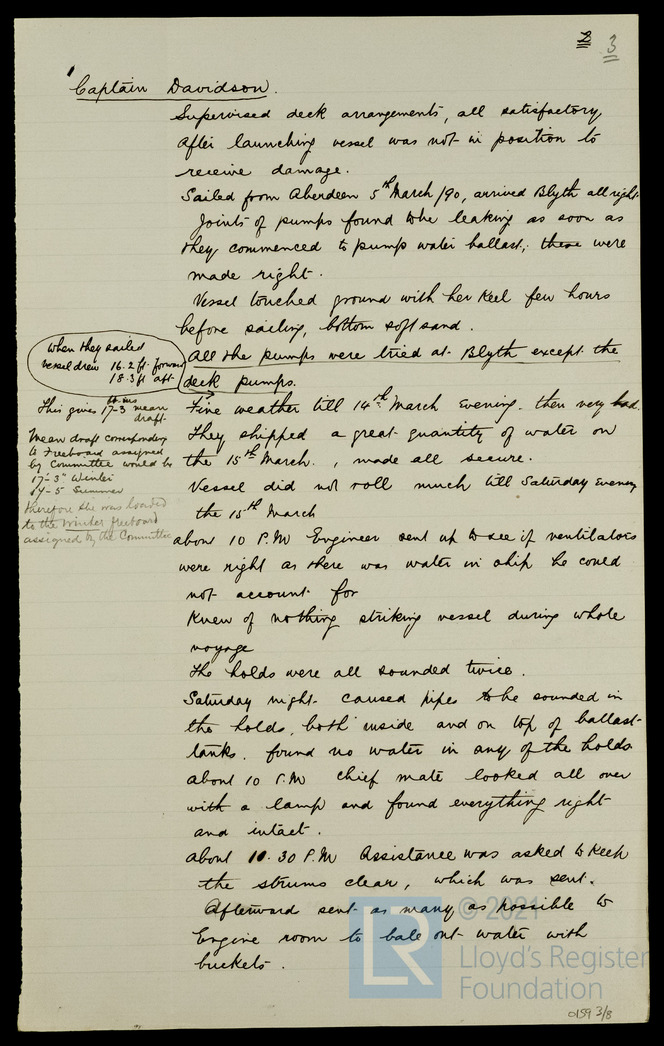 3
Captain Davidson.
Supervised deck arrangements, all satisfactory
After launching vessel was not in position to
receive damage.
Sailed from Aberdeen 5th March /90, arrived Blyth all right.
Joints of pumps found to be leaking as soon as
they commenced to pump water ballast; these were
made right.
Vessel touched ground with her keel few hours
before sailing, bottom soft sand.
when they sailed
vessel drew 16.2 ft forward
18.3 ft aft
All the pumps were tried at Blyth except the
deck pumps.
This gives 17-3 mean
draft
Mean draft corresponding
to Freeboard assigned
by Committee would be
17-3" Winter
17-5 Summer
therefore she was loaded
to the Winter freeboard
assigned by the Committee
Fine weather till 14th March Evening. then very bad.
They shipped a great quantity of water on
the 15th March., made all secure.
Vessel did not roll much till Saturday Evening
the 15th March
about 10 P.M Engineer sent up to see if ventilators
were right as there was water in ship he could
not account for
Knew of nothing striking vessel during whole
voyage
The holds were all sounded twice.
Saturday night caused pipes to be sounded in
the holds, both inside and on top of ballast
tanks. found no water in any of the holds
about 10 P.M chief mate looked all over
with a lamp and found everything right
and intact.
about 10.30 P.M Assistance was asked to keep
the strums clear, which was sent.
Afterward sent as many as possible to
Engine room to bale out water with
buckets.
© 2021
LR
Lloyd's Register
Foundation
0159 3/8